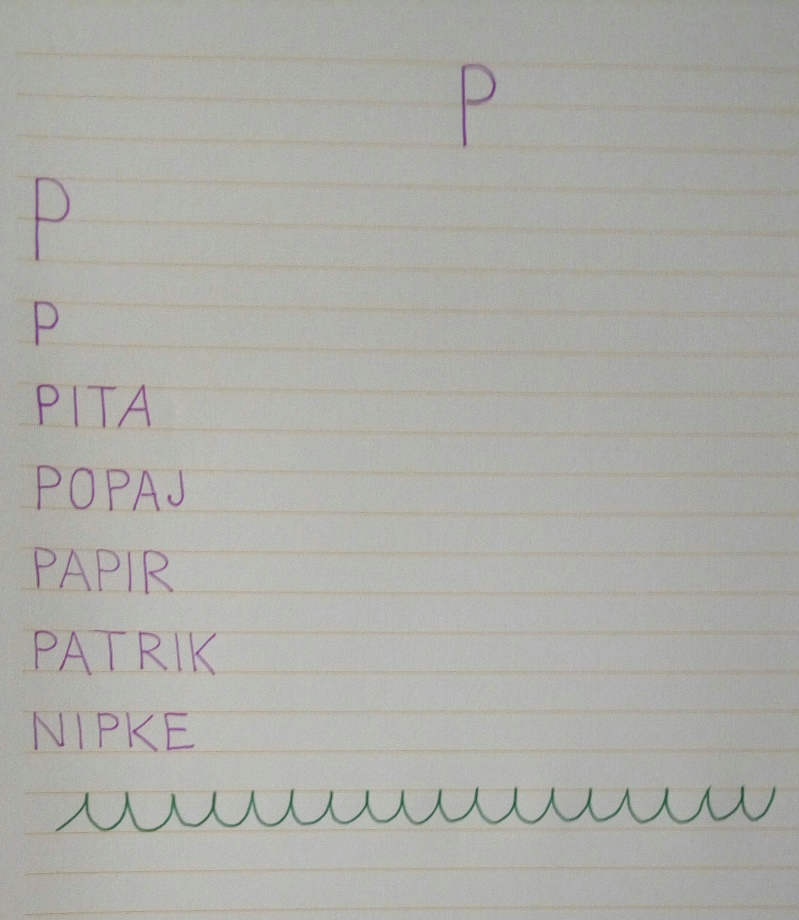 P
P
P
PITA
POPAJ
PAPIR
PATRIK
NIPKE